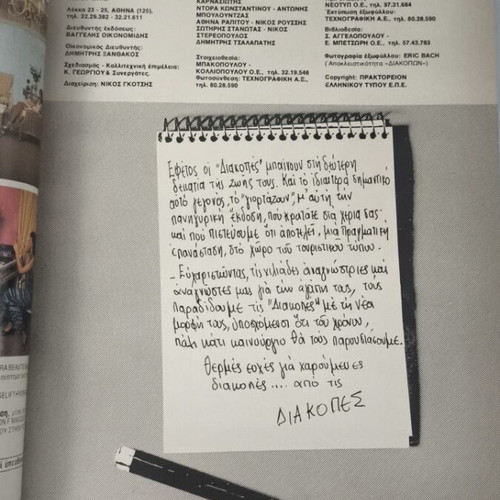 Λέκκα 23 - 25, ΑΘΗΝΑ (125),
τηλ. 32.29.382 - 32.21.611
Διευθυντής έκδοσης:
ΒΑΓΓΕΛΗΣ ΟΙΚΟΝΟΜΙΔΗΣ
Οικονομικός Διευθυντής:
ΔΗΜΗΤΡΗΣ ΞΑΝΘΑΚΟΣ
Σχεδιασμός - Καλλιτεχνική επιμέλεια:
Κ. ΓΕΩΡΓΙΟΥ & Συνεργάτες.
Διαχείριση: ΝΙΚΟΣ ΓΚΟΤΣΗΣ
ΚΑΡΝΑΣΙΩΤΗΣ
ΝΤΟΡΑ ΚΩΝΣΤΑΝΤΙΝΟΥ - ΑΝΤΩΝΗΣ
ΜΠΟΥΛΟΥΤΖΑΣ
ΑΘΗΝΑ ΡΑΠΙΤΟΥ - ΝΙΚΟΣ ΡΟΥΣΣΗΣ
ΣΩΤΗΡΗΣ ΣΤΑΝΩΤΑΣ - ΝΙΚΟΣ
ΣΤΕΡΕΟΠΟΥΛΟΣ
ΔΗΜΗΤΡΗΣ ΤΣΑΛΑΠΑΤΗΣ
Στοιχειοθεσία:
ΜΠΑΚΟΠΟΥΛΟΥ -
ΚΟΛΛΙΟΠΟΥΛΟΥ Ο.Ε., τηλ. 32.19.548
Φωτοσύνθεση: ΤΕΧΝΟΓΡΑΦΙΚΗ Α.Ε.,
τηλ. 80.28.590
ΝΕΟΤΥΠ Ο.Ε., τηλ. 97.31.664
Εκτύπωση εξωφύλλου:
ΤΕΧΝΟΓΡΑΦΙΚΗ Α.Ε., τηλ. 80.28.590
Βιβλιοδεσία:
Σ. ΑΓΓΕΛΟΠΟΥΛΟΥ -
Ε. ΜΠΕΤΣΩΡΗ Ο.Ε., τηλ. 57.43.783
Φωτογραφία εξωφύλλου: ERIC BACH
(Αποκλειστικότητα «ΔΙΑΚΟΠΩΝ»)
Copyright: ΠΡΑΚΤΟΡΕΙΟΝ
ΕΛΛΗΝΙΚΟΥ ΤΥΠΟΥ Ε.Π.Ε.
Εφέτος οι "Διακοπές" μπαίνουν στη δεύτερη
δεκαετία της ζωής τους. Και το ιδιαίτερα σημαντικό
αυτό γεγονός, το "γιορτάζουν", μ' αυτή την
πανηγυρική έκδοση, που κρατάτε στα χέρια σας
και που πιστεύουμε ότι αποτελεί, μια πραγματική
επανάσταση, στο χώρο του τουριστικού τύπου.
- Ευχαριστώντας, τις χιλιάδες αναγνώστριες και
αναγνώστες μας για την αγάπη τους, τους
παραδίδουμε τις "Διακοπές" με τη νέα
μορφή τους, υποσχόμενοι ότι του χρόνου,
πάλι κάτι καινούργιο θα τους παρουσιάσουμε.
Θερμές ευχές για χαρούμενες
διακοπές.... από τις
ΔΙΑΚΟΠΕΣ